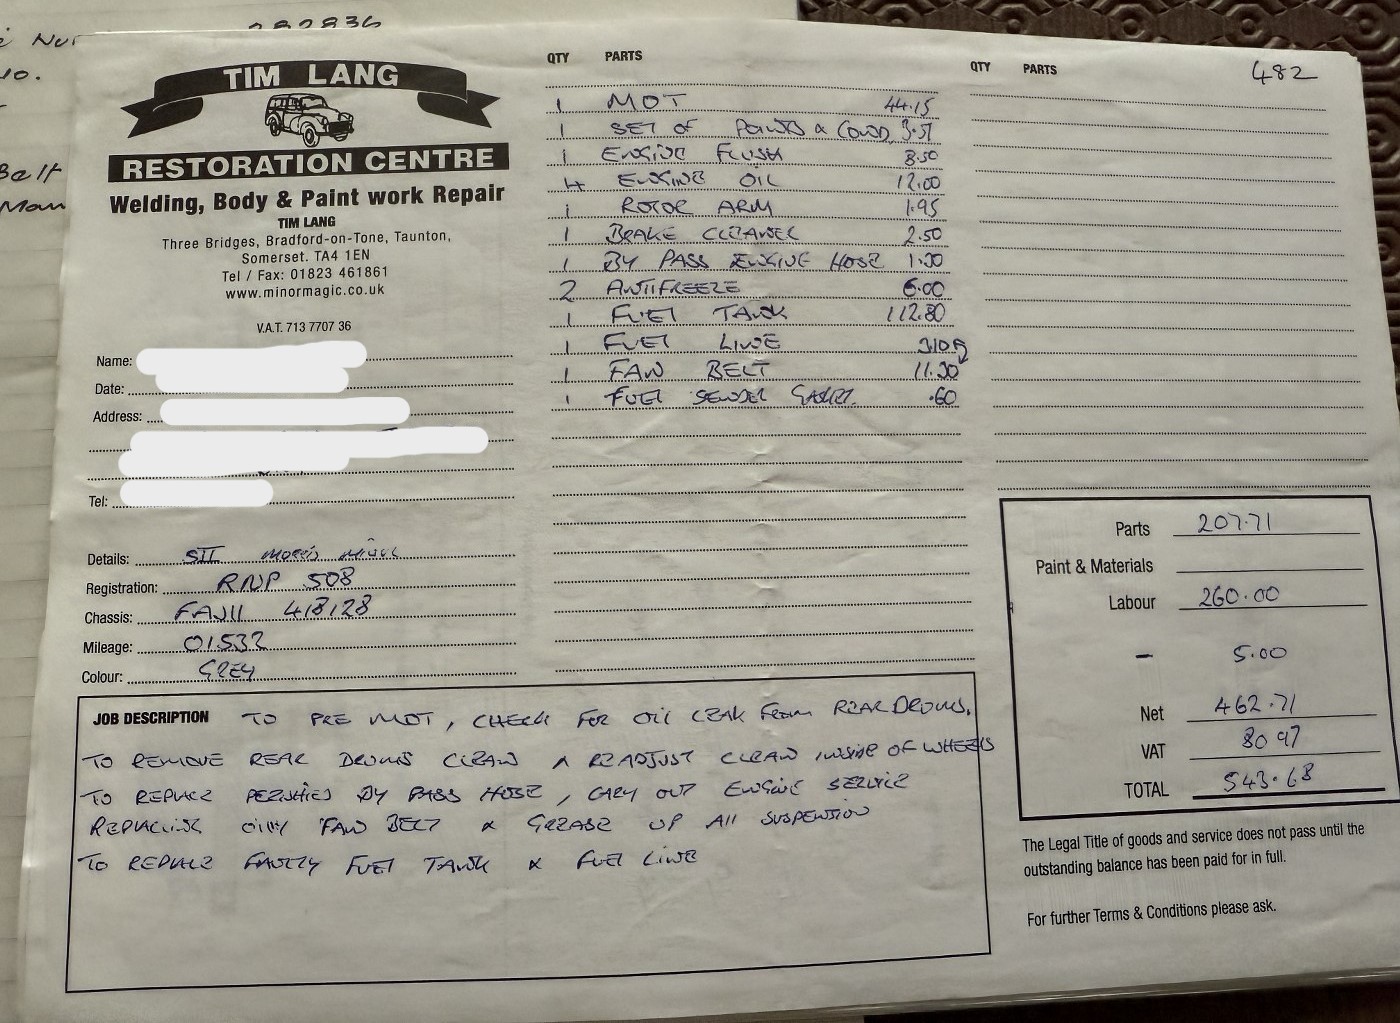 282836
10.
Belt
TIM LANG
RESTORATION CENTRE
Welding, Body & Paint work Repair
TIM LANG
Three Bridges, Bradford-on-Tone, Taunton,
Somerset. TA4 1EN
Tel / Fax: 01823 461861
www.minormagic.co.uk
V.A.T. 713 7707 36
Name:
Date:
Address:
Tel:
Details: SII MORRIS MINOR
Registration: RNP 508
Chassis: FAJII 418128
Mileage: 01532
Colour: GREY
QTY PARTS
1 MOT 44.15
1 SET OF POINTS & COND 3.51
1 ENGINE FLUSH 8.50
4 ENGINE OIL 12.00
1 ROTOR ARM 1.95
1 BRAKE CLEANER 2.50
1 BY PASS ENGINE HOSE
2 ANTIFREEZE 6.00
1 FUEL TANK 112.80
1 FUEL LINE
1 FAN BELT
1 FUEL SENDER GASKET .60
QTY PARTS 482
Parts 207.71
Paint & Materials
Labour 260.00
– 5.00
Net 462.71
VAT 80 97
TOTAL 543.68
JOB DESCRIPTION TO PRE MOT, CHECK FOR OIL LEAK FROM REAR DRUMS.
TO REMOVE REAR DRUMS CLEAN & READJUST CLEAN INSIDE OF WHEELS
TO REPLACE PERISHED BY PASS HOSE, CARY OUT ENGINE SERVICE
REPLACING OILY FAN BELT & GREASE UP All SUSPENTION
TO REPLACE FAULTY FUEL TANK & FUEL LINE
The Legal Title of goods and service does not pass until the
outstanding balance has been paid for in full.
For further Terms & Conditions please ask.